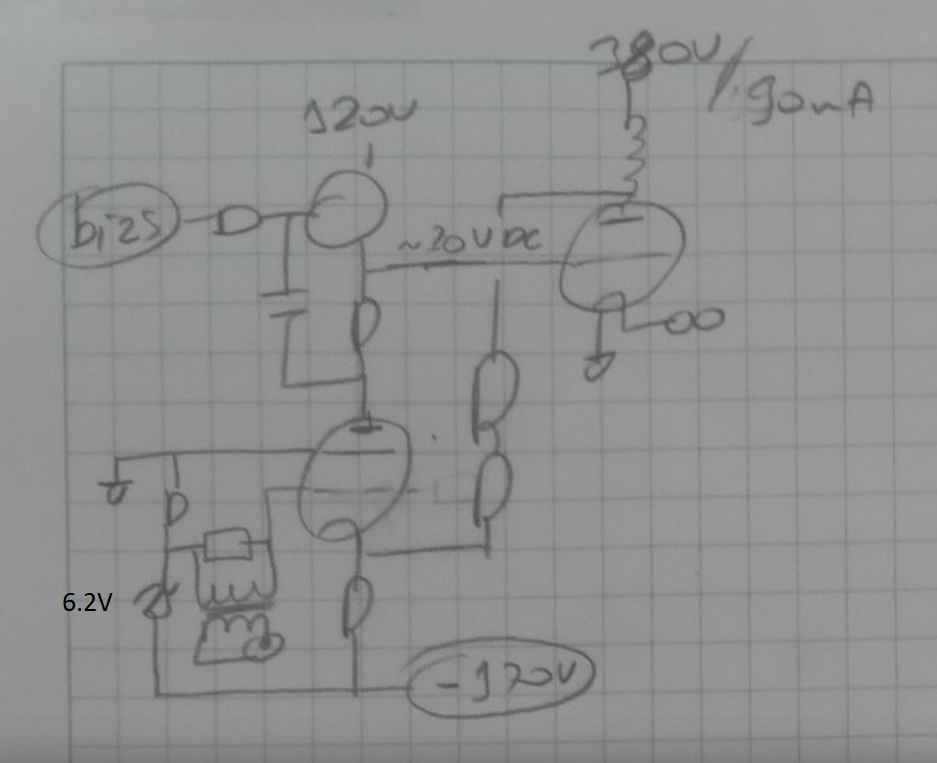 380V/90mA
120V
bias
~20V DC
6.2V
-120V